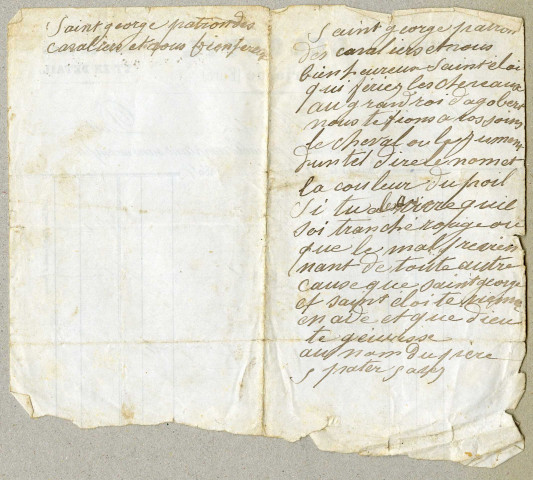 Saint george patron des
cavaliers et vous bienheureux
Saint george patron
des cavaliers et vous
bienheureux Saint eloi
qui feriez les chevaux
au grand roi dagobert
nous te fions a vos soins
le cheval ou la jument
dun tel dire le nom et
la couleur du poil
Si tu quil
soi tranché rouge ou
que le mal
nant de toute autre
cause que saint george
et saint eloi te
en ade et que dieu
te gerisse
au nom du pere
5 pater 5 ave